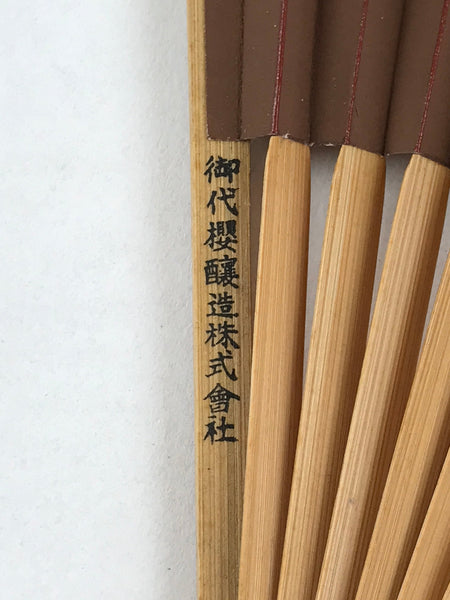 御代櫻醸造株式會社